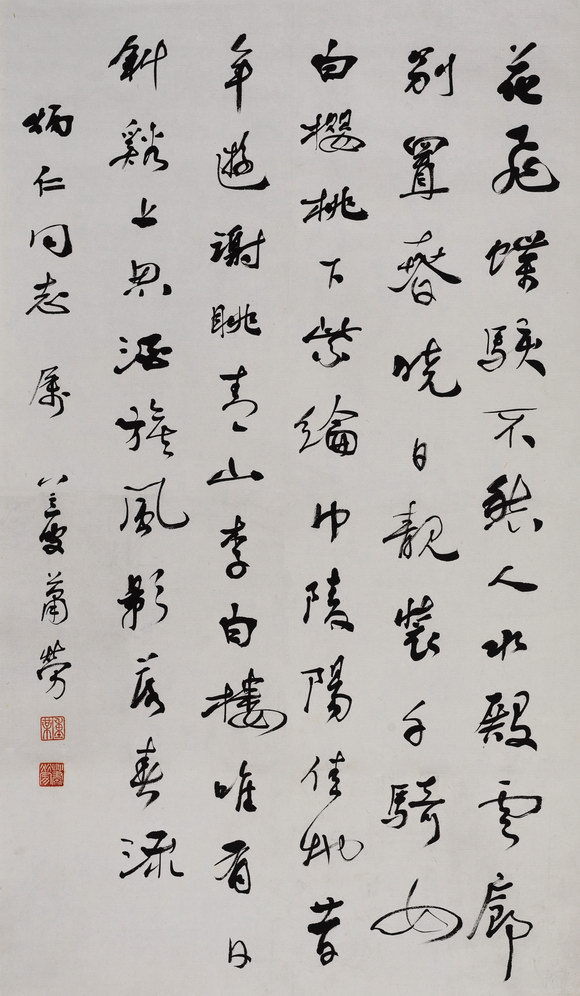 花飛蝶駭不愁人水殿雲廊
別置春曉日靚裝千騎女
白櫻桃下紫綸巾陵陽佳地昔
年遊謝眺青山李白樓唯有日
斜谿上思酒旗風影落春流
炳仁同志屬 八三叟蕭勞